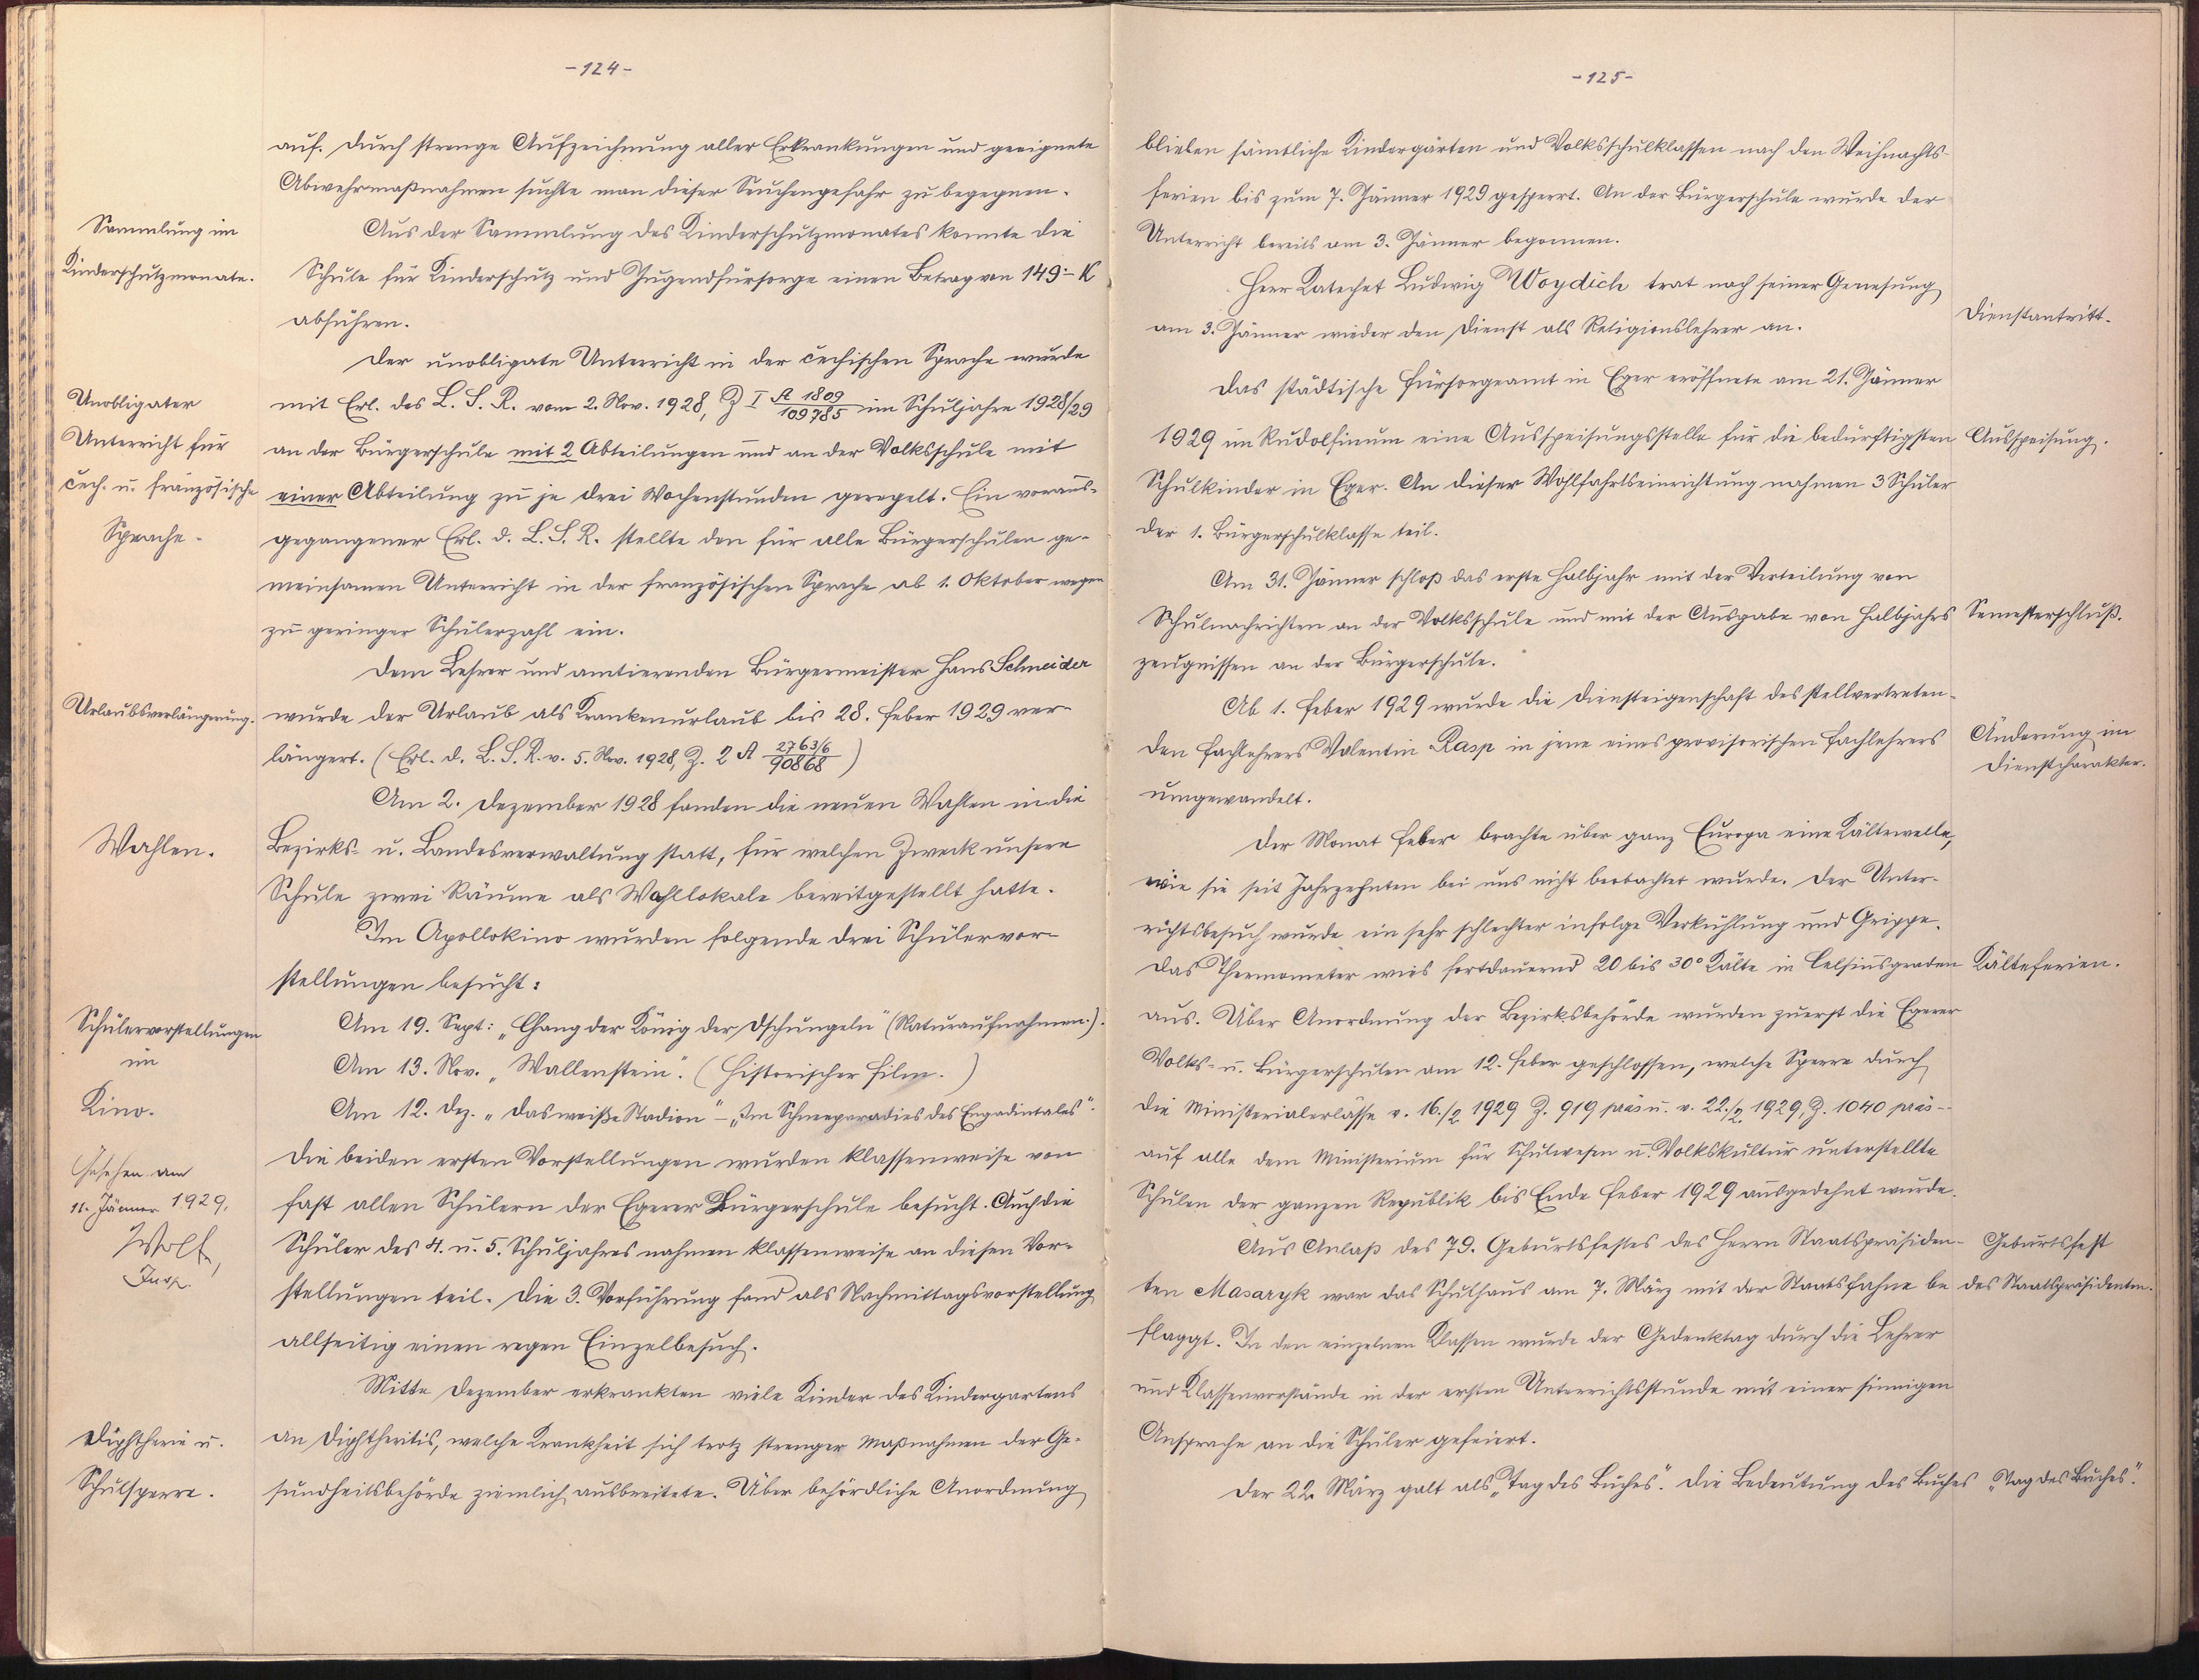 -124-
auf. Durch strenge Aufzeichnung aller Erkrankungen und geeignete
Abwehrmaßnahmen suchte man dieser Seuchengefahr zu begegnen.
Sammlung im
Kinderschutzmonate.
Aus der Sammlung des Kinderschutzmonates konnte die
Schule für Kinderschutz und Jugendfürsorge einen Betrag von 149·- K
abführen.
Der unobligate Unterricht in der čechischen Sprache wurde
Unobligater
Unterricht für
čech. u. französische
Sprache.
mit Erl. des L. S. R. vom 2. Nov. 1928, Z I A 1809/109785 im Schuljahre 1928/29
an der Bürgerschule mit 2 Abteilungen und an der Volksschule mit
einer Abteilung zu je drei Wochenstunden geregelt. Ein voraus-
gegangener Erl. d. L. S. R. stellte den für alle Bürgerschulen ge-
meinsamen Unterricht in der französischen Sprache ab 1. Oktober wegen
zu geringer Schülerzahl ein.
Dem Lehrer und amtierenden Bürgermeister Hans Schneider
Urlaubsverlängerung.
wurde der Urlaub als Krankenurlaub bis 28. Feber 1929 ver-
längert. (Erl. d. L. S. R. v. 5. Nov. 1928, Z. 2 A 2763/6/90868)
Am 2. Dezember 1928 fanden die neuen Wahlen in die
Wahlen.
Bezirks- u. Landesverwaltung statt, für welchen Zweck unsere
Schule zwei Räume als Wahllokale bereitgestellt hatte.
Im Apollokino wurden folgende drei Schülervor-
stellungen besucht:
Schülervorstellungen
im
Kino.
Am 19. Sept: „Chang der König der Dschungeln" (Naturaufnahmen.).
Am 13. Nov. „Wallenstein". (Historischer Film.)
Am 12. Dez. „Das weiße Stadion" – „Im Schneeparadies des Engadintales".
Gesehen am
11. Jänner 1929.
Wolf,
Insp.
Die beiden ersten Vorstellungen wurden klassenweise von
fast allen Schülern der Egerer Bürgerschule besucht. Auch die
Schüler des 4. u. 5. Schuljahres nahmen klassenweise an diesen Vor-
stellungen teil. Die 3. Vorführung fand als Nachmittagsvorstellung
allseitig einen regen Einzelbesuch.
Mitte Dezember erkrankten viele Kinder des Kindergartens
Diphtherie u.
Schulsperre.
an Diphtheritis, welche Krankheit sich trotz strenger Maßnahmen der Ge-
sundheitsbehörde ziemlich ausbreitete. Über behördliche Anordnung
-125-
blieben sämtliche Kindergärten und Volksschulklassen nach den Weihnachts-
ferien bis zum 7. Jänner 1929 gesperrt. An der Bürgerschule wurde der
Unterricht bereits am 3. Jänner begonnen.
Herr Katechet Ludwig Woydich trat nach seiner Genesung
am 3. Jänner wieder den Dienst als Religionslehrer an.
Dienstantritt.
Das städtische Fürsorgeamt in Eger eröffnete am 21. Jänner
1929 im Rudolfinum eine Ausspeisungsstelle für die bedürftigsten
Ausspeisung.
Schulkinder in Eger. An dieser Wohlfahrtseinrichtung nahmen 3 Schüler
der 1. Bürgerschulklasse teil.
Am 31. Jänner schloß das erste Halbjahr mit der Verteilung von
Schulnachrichten an der Volksschule und mit der Ausgabe von Halbjahrs
Semesterschluß.
zeugnissen an der Bürgerschule.
Ab 1. Feber 1929 wurde die Diensteigenschaft des stellvertreten-
den Fachlehrers Valentin Rasp in jene eines provisorischen Fachlehrers
Änderung im
Dienstcharakter.
umgewandelt.
Der Monat Feber brachte über ganz Europa eine Kältewelle,
wie sie seit Jahrzehnten bei uns nicht beobachtet wurde. Der Unter-
richtsbesuch wurde ein sehr schlechter infolge Verkühlung und Grippe.
Das Thermometer wies fortdauernd 20 bis 30° Kälte in Celsiusgraden
Kälteferien.
aus. Über Anordnung der Bezirksbehörde wurden zuerst die Egerer
Volks- u. Bürgerschulen am 12. Feber geschlossen, welche Sperre durch
die Ministerialerlässe v. 16./2 1929 Z. 919 präs u. v. 22./2. 1929, Z. 1040 präs--
auf alle dem Ministerium für Schulwesen u. Volkskultur unterstellte
Schulen der ganzen Republik bis Ende Feber 1929 ausgedehnt wurde.
Aus Anlaß des 79. Geburtsfestes des Herrn Staatspräsiden-
Geburtsfest
ten Masaryk war das Schulhaus am 7. März mit der Staatsfahne be
des Staatspräsidenten.
flaggt. In den einzelnen Klassen wurde der Gedenktag durch die Lehrer
und Klassenvorstände in der ersten Unterrichtsstunde mit einer sinnigen
Ansprache an die Schüler gefeiert.
Der 22. März galt als „Tag des Buches". Die Bedeutung des Buches
„Tag des Buches".